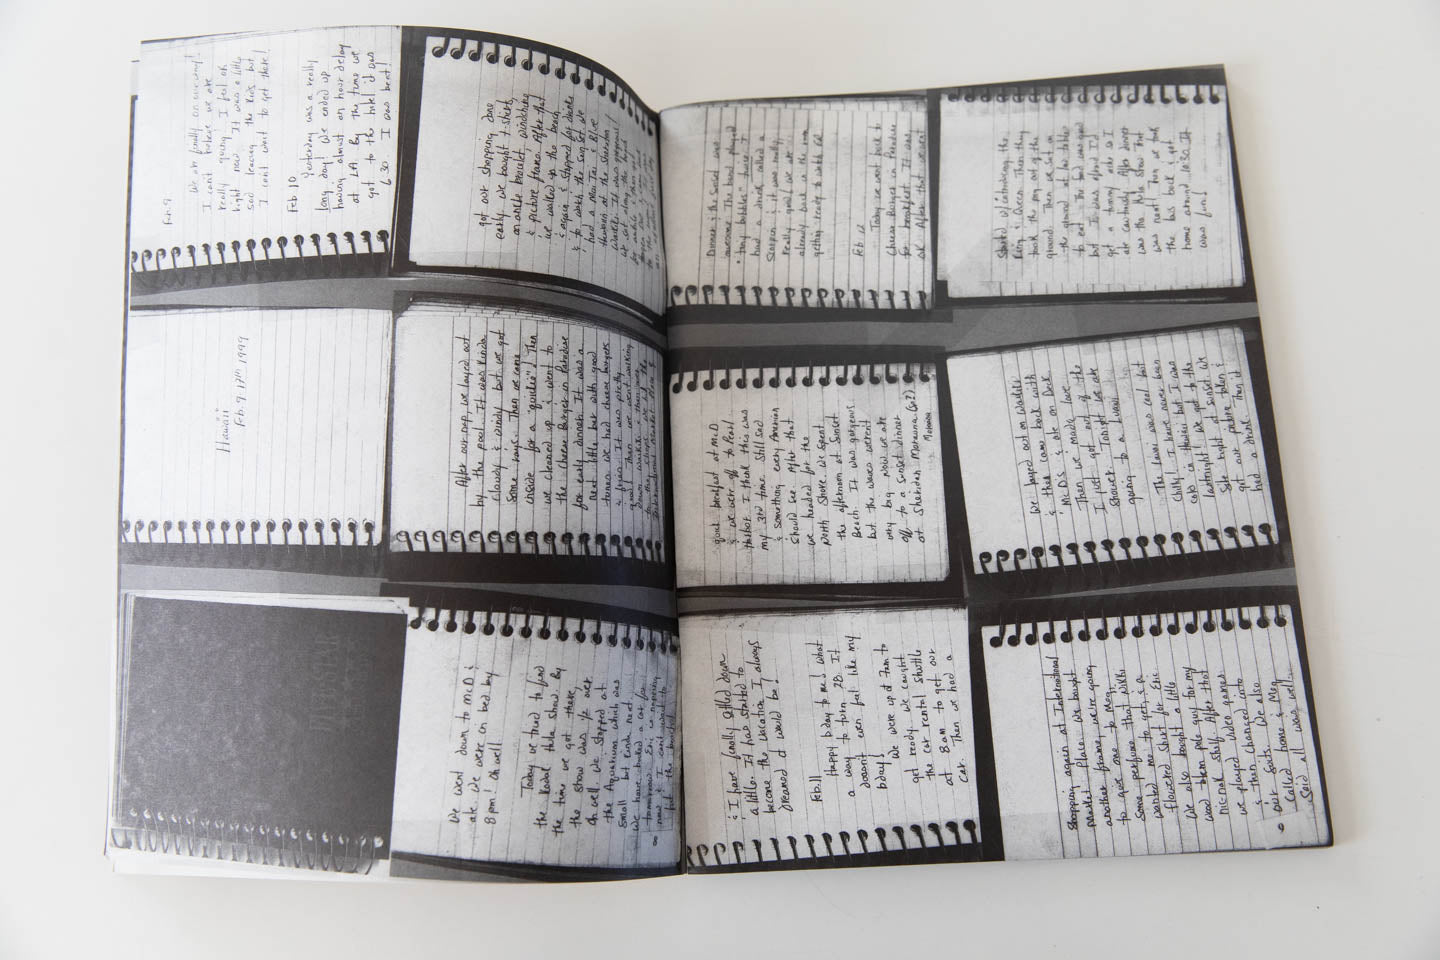 Hawaii
Feb. 9-17th 1999
Feb. 9
We are finally on our way!
I can't believe we are
really going! I feel ok
right now. I was a little
sad leaving the kids but
I can't wait to get there!
Feb 10
Yesterday was a really
long day! We ended up
having almost an hour delay
at LA. By the time we
got to the hotel it was
6:30 I was beat!
We went down to McD &
ate. We were in bed by
8pm! Oh well.
Today we tried to find
the Kodak Hula show. By
the time we got there,
the show was 1/2 over.
Oh well. We stopped at
the Aquarium which was
small but kinda neat
We have booked a
tomorrow. Eric is napping
now & I can't wait to
8
After our nap we layed out
by the pool. It was kinda
cloudy & windy but we got
some rays. Then we came
inside for a "quickie". Then
we cleaned up & went to
the cheese Burger in Paradise
for early dinner. It was a
neat little bar with good
tunes we had cheese burgers
& fries It was pretty
good. Then we went walking
down
International Market Place &
got our shopping done
early. We bought t-shirts,
an ankle bracelet, windchime
& picture frame. After that
we walked up the beach
again & stopped for drinks
& to watch the sunset. We
had a Mai Tai & Blue
Hawaiian at the Sheraton
Waikiki. It was gorgeous!
We sat along the
for awhile & then
& I have finally settled down
a little. It has started to
become the vacation I always
dreamed it would be!
Feb. 11
Happy b day to me! what
a way to turn 28. It
doesn't even feel like my
b day!
We were up at 7am to
get ready. We caught
the car rental shuttle
at 8am to get our
car. Then we had a
quick breakfast at McD
& we were off to Pearl
Harbor. I think this was
my 3rd time. Still sad
& something every American
should see. After that
we headed for the
North Shore. We spent
the afternoon at Sunset
Beach. It was gorgeous
but the waves weren't
very big. Now we are
off to a sunset dinner
at Sheraton
Moana
Dinner & the Sunset was
awesome. The band played
"tiny bubbles" twice. I
had a drink called a
Scorpion & it was really
really good! We are
already back in the room
getting ready to watch ER
Feb 12
Today we went back to
cheese Burger in Paradise
for breakfast. It was
OK. After that we went
Shopping again at International
Market Place. We bought
another frame, we're going
to give one to Meg,
some perfume that Nikki
wanted me to get, & a
flowered shirt for Eric
We also bought a little
wood totem pole guy for my
nic nak shelf. After that
we played video games
& then changed into
our suits. We also
called home & Meg
Said all was well.
9
We layed out on Waikiki
& then came back with
McD's & ate on Deck
Then we made love.
I just got out of the
shower. Tonight we are
going to a Luau!
The Luau was cool but
chilly. I have never been
cold in Hawaii but I was
last night. We got to the
site right at sunset. We
got our picture taken &
had a drink. Then it
Started w/ introducing the
King & Queen. Then they
took the pig out of the
ground. Then we sat on
the ground at low tables
to eat. The food was good
but it was after
got a tummy ache so I
ate cautiously. After dinner
was the Hula show. That
was neat! Then we took
the bus back & got
home around 10:30. It
was fun!